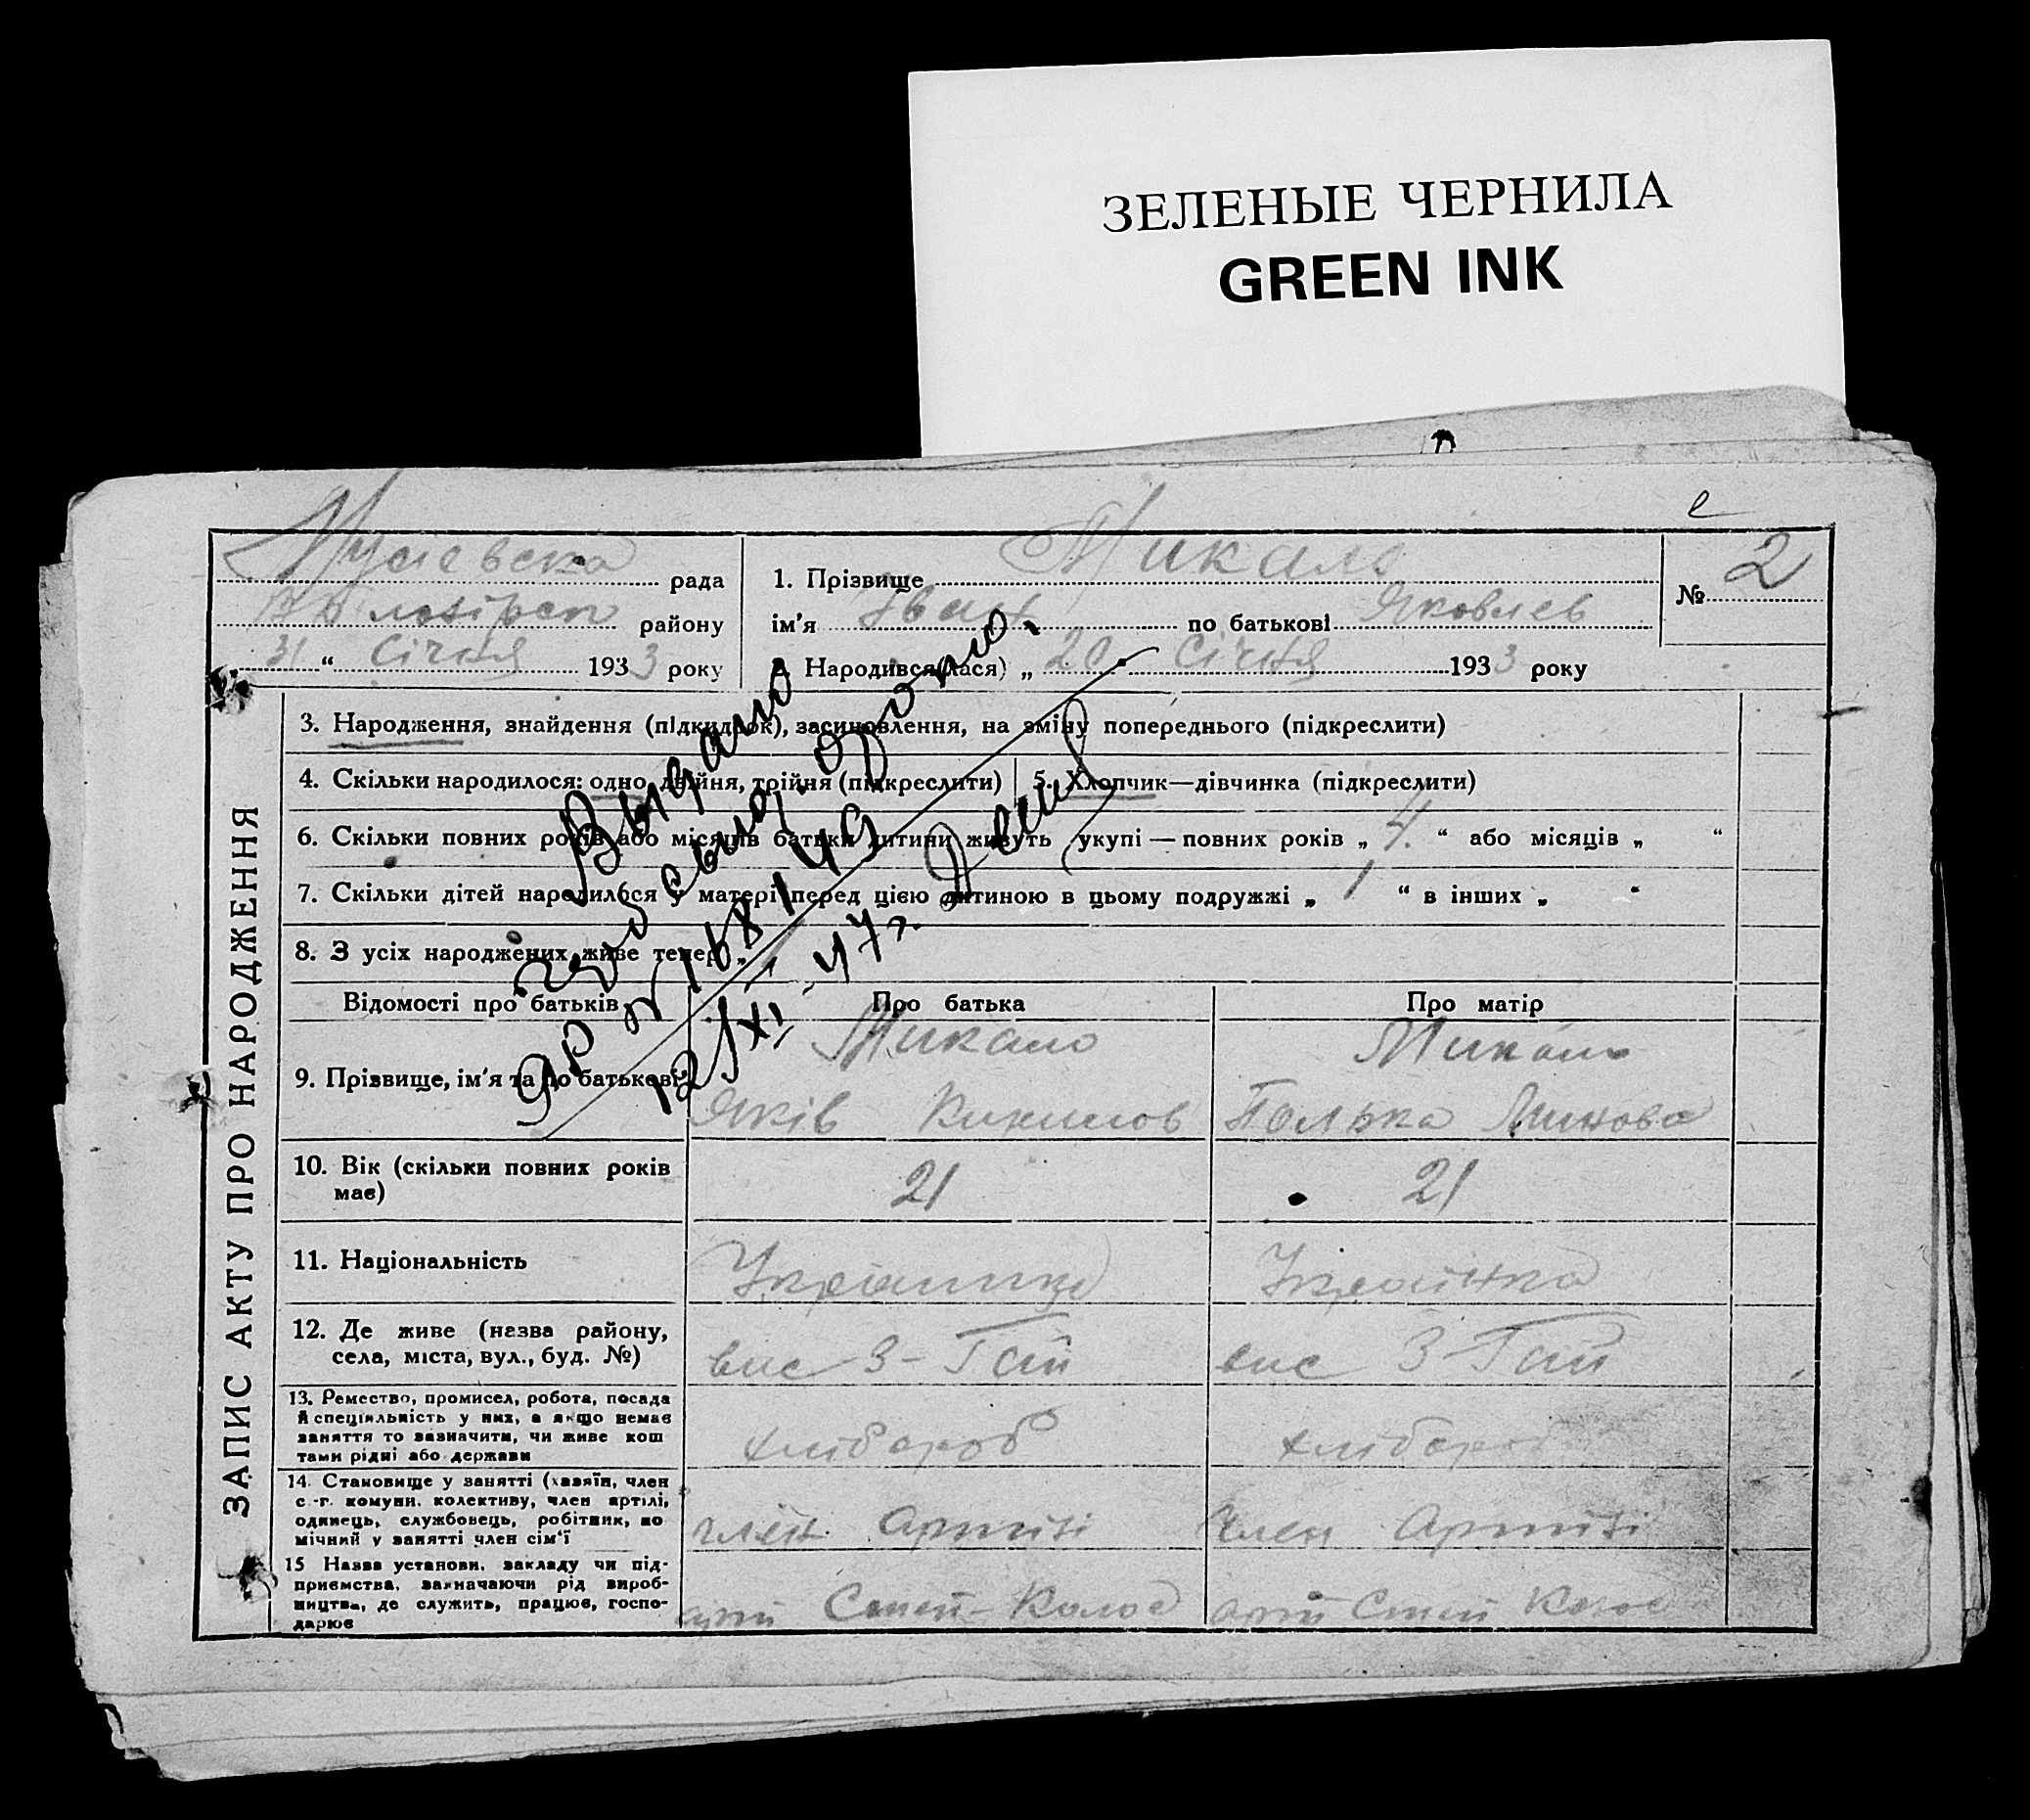 ЗЕЛЕНЫЕ ЧЕРНИЛА
GREEN INK
рада
району
31 " Січня 1933 року
1. Прізвище Микаль
ім'я Іван по батькові Яковлев
2. Народився(лася) „ 20 Січня 1933 року
№ 2
ЗАПИС АКТУ ПРО НАРОДЖЕННЯ
3. Народження, знайдення (підкидьок), засиновлення, на зміну попереднього (підкреслити)
4. Скільки народилося: одно, двійня, трійня (підкреслити)
5. Хлопчик—дівчинка (підкреслити)
6. Скільки повних років або місяців батьки дитини живуть укупі — повних років „ 4. “ або місяців „ “
7. Скільки дітей народилося у матері перед цією дитиною в цьому подружжі „ 1 “ в інших „ “
8. З усіх народжених живе тепер „ 1
Выдано
повід. свид. о
№ 168149
12/XI - 47 г.
Відомості про батьків
Про батька
Про матір
9. Прізвище, ім'я та по батькові
Микаль
Яків
Микаль
10. Вік (скільки повних років має)
21
21
11. Національність
Українець
Українка
12. Де живе (назва району, села, міста, вул., буд. №)
вис 3-Гай
вис 3-Гай
13. Ремество, промисел, робота, посада
й спеціяльність у них, а якщо немає
заняття то зазначити, чи живе кош
тами рідні або держави
хлібороб
хлібороб
14. Становище у занятті (хазяїн, член
с.-г. комуни, колективу, член артілі,
одинець, службовець, робітник, по
мічний у занятті член сім'ї
член Артілі
член Артілі
15 Назва установи, закладу чи під-
приємства, зазначаючи рід вироб-
ництва, де служить, працює, госпо-
дарює
арт Колос
арт Колос